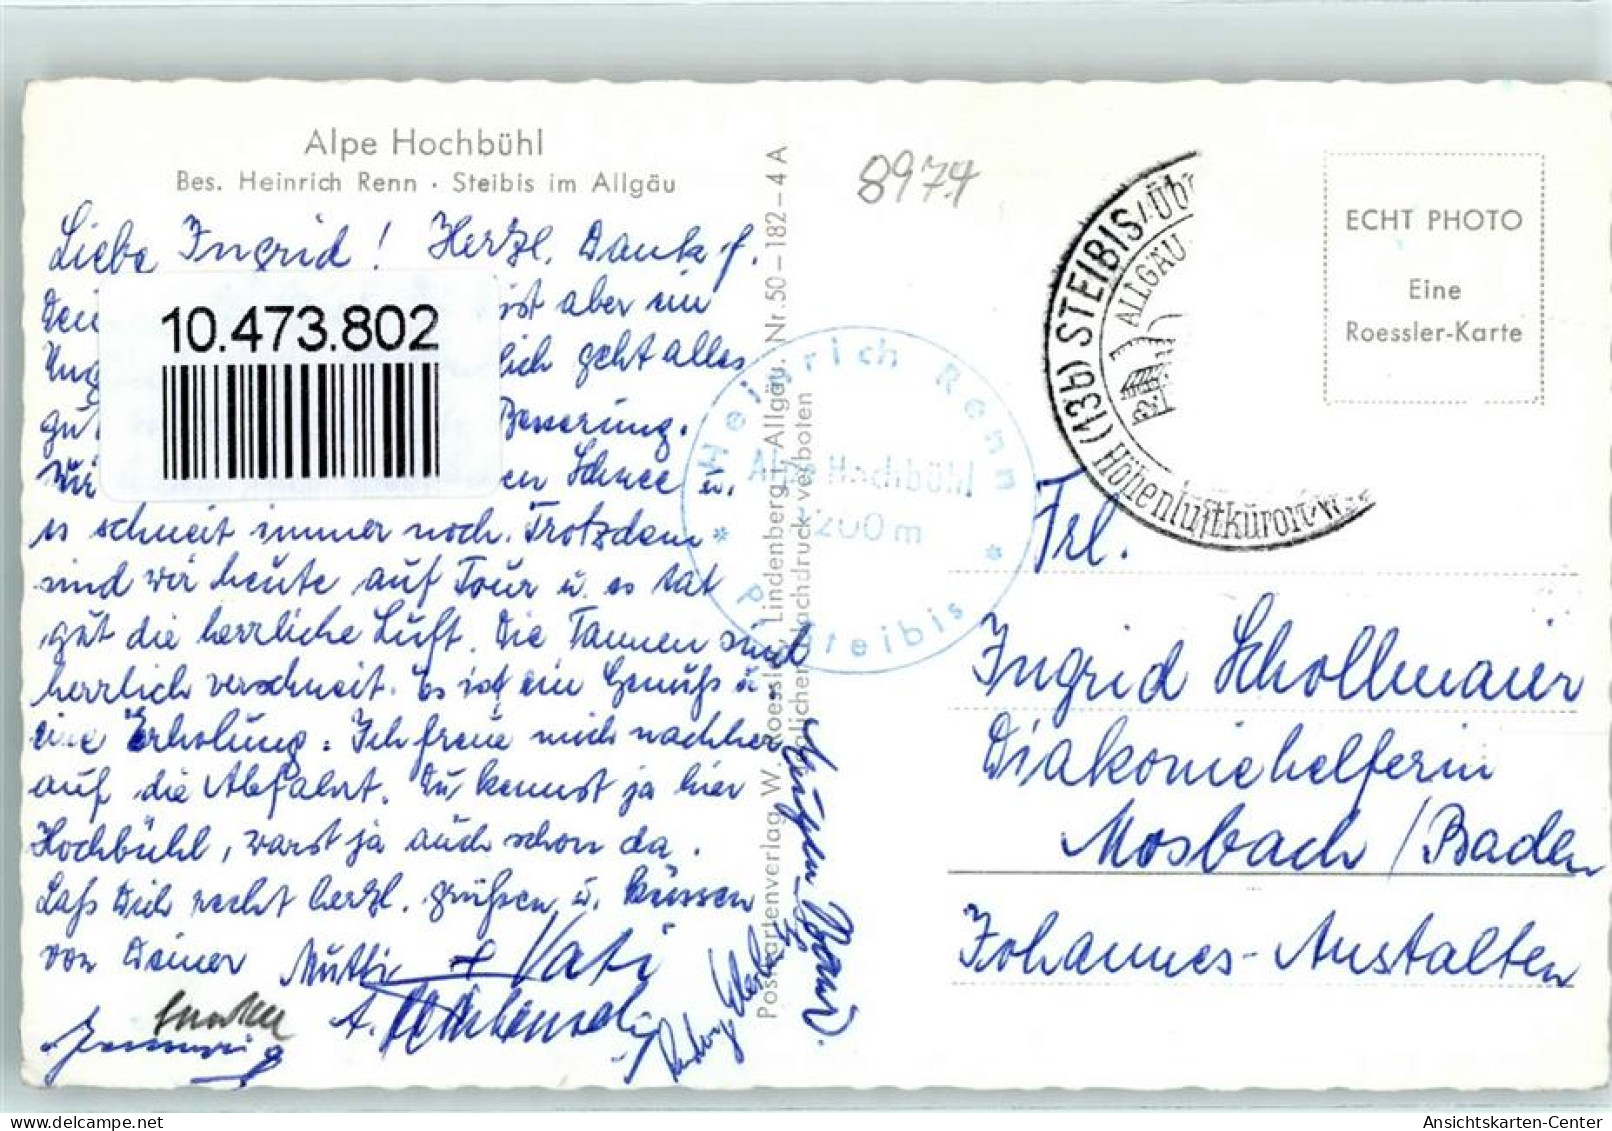 Alpe Hochbühl
Bes. Heinrich Renn · Steibis im Allgäu
Liebe Ingrid! Herzl. Dank f.
Dein ist aber ein
Ung lich geht alles
gut Besserung.
Wir en Schnee u.
es schneit immer noch. Trotzdem
sind wir heute auf Tour u. es tat
gut die herrliche Luft. Die Tannen sind
herrlich verschneit. Es ist ein Genuß u.
eine Erholung. Ich freue mich nachher
auf die Abfahrt. Du kennst ja hier
Hochbühl, warst ja auch schon da.
Laß Dich recht herzl. grüßen u. küssen
von Deiner Mutti + Vati
10.473.802
Postkartenverlag W. Roessler, Lindenberg i. Allgäu. Nr. 50-182-4 A
Nachdruck verboten
Heinrich Renn
Alpe Hochbühl
1200 m
P. Steibis
8974
(13b) STEIBIS/ÜB
ALLGÄU
Höhenluftkurort
ECHT PHOTO
Eine
Roessler-Karte
Frl.
Ingrid Schollmaier
Diakoniehelferin
Mosbach/Baden
Johannes-Anstalten
Ansichtskarten-Center